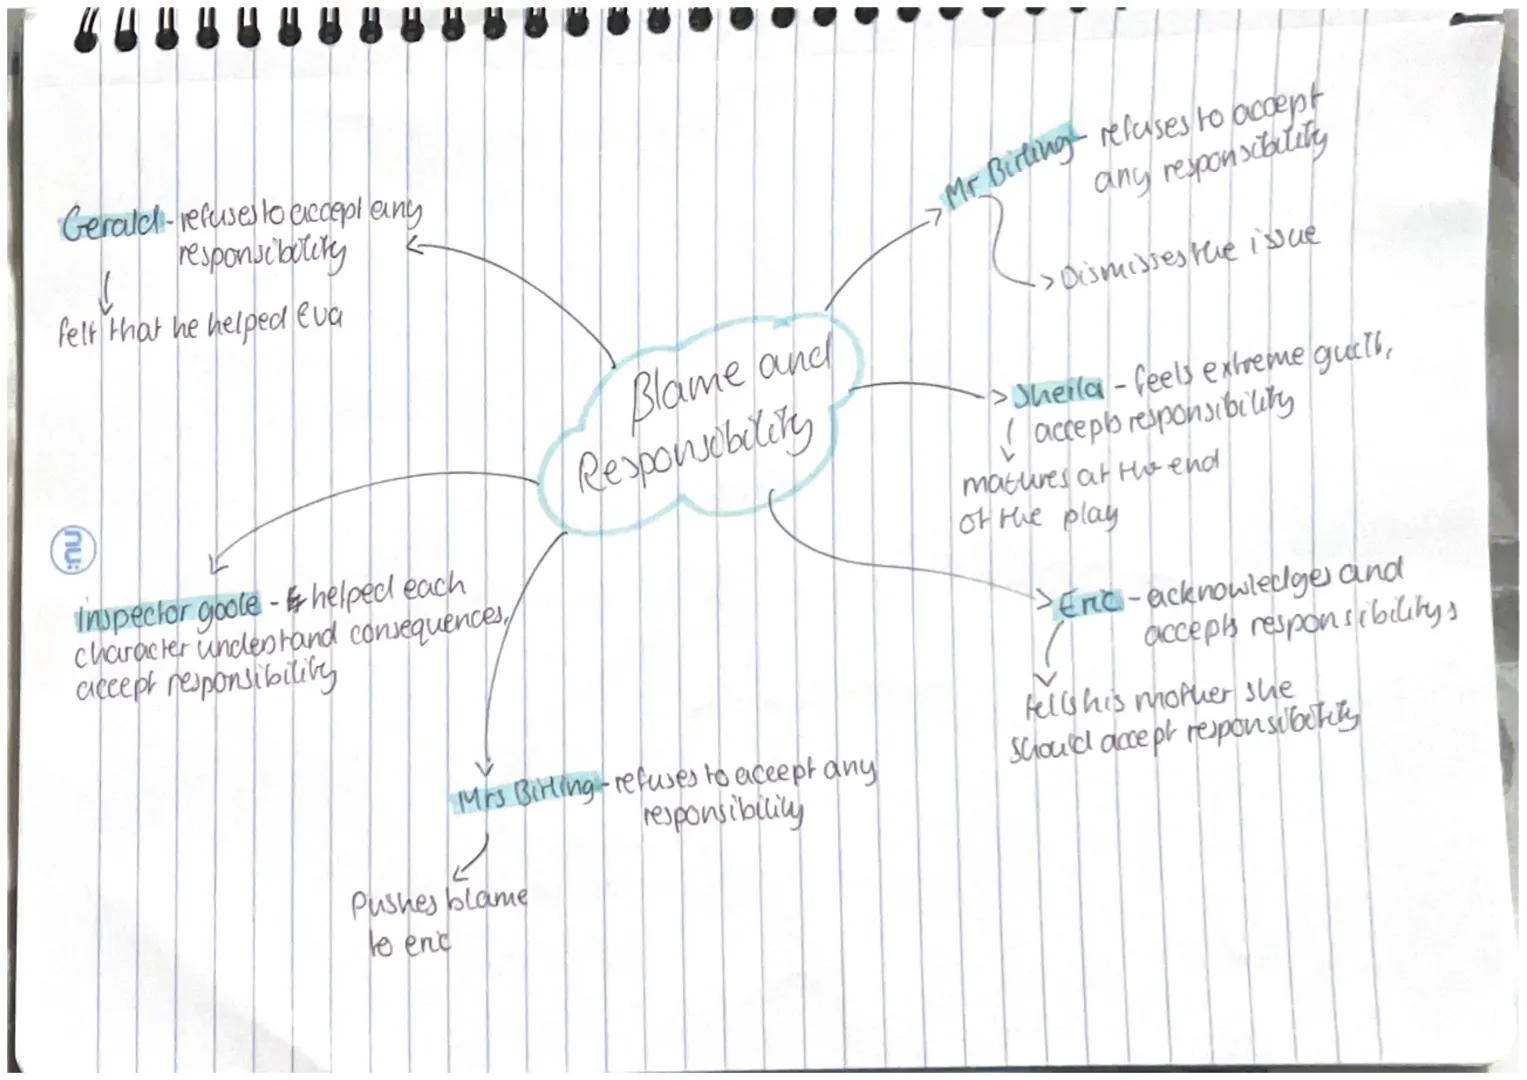 Blame and
Responsibility
Mr Birling - refuses to accept
any responsibility
Dismisses the issue
Sheila - feels extreme guilt,
accepts responsibility
matures at the end
of the play
Eric - acknowledges and
accepts responsibilitys
tells his mother she
should accept responsibility
Mrs Birling - refuses to accept any
responsibility
Pushes blame
to eric
Inspector goole - helped each
character understand consequences,
accept responsibility
Gerald - refuses to accept any
responsibility
felt that he helped Eva
nü